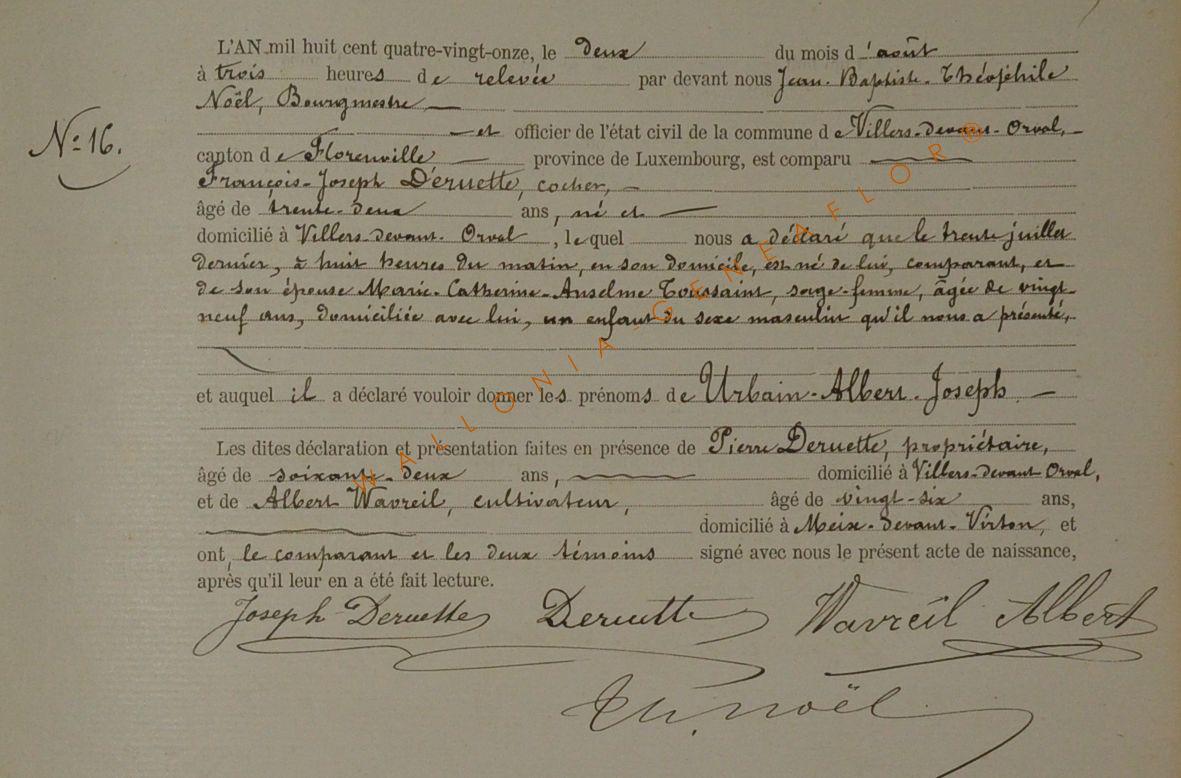 L'AN mil huit cent quatre-vingt-onze, le deux du mois d'août
à trois heures de relevée par devant nous Jean-Baptiste-Théophile
Noël, Bourgmestre
N° 16.
et officier de l'état civil de la commune de Villers-devant-Orval,
canton de Florenville province de Luxembourg, est comparu
François-Joseph Deruette, cocher,
âgé de trente-deux ans, né et
domicilié à Villers-devant-Orval, lequel nous a déclaré que le trente juillet
dernier, à huit heures du matin, en son domicile, est né de lui, comparant, et
de son épouse Marie-Catherine-Anselme Toussaint, sage-femme, âgée de vingt-
neuf ans, domiciliée avec lui, un enfant du sexe masculin qu'il nous a présenté,
et auquel il a déclaré vouloir donner les prénoms de Urbain-Albert-Joseph
Les dites déclaration et présentation faites en présence de Pierre Deruette, propriétaire,
âgé de soixante-deux ans, domicilié à Villers-devant-Orval,
et de Albert Wavreil, cultivateur, âgé de vingt-six ans,
domicilié à Meix-devant-Virton, et
ont, le comparant et les deux témoins signé avec nous le présent acte de naissance,
après qu'il leur en a été fait lecture.
Joseph Deruette Deruette Wavreil Albert
Th. Noël
WALLONIA-GENEAFLOR®